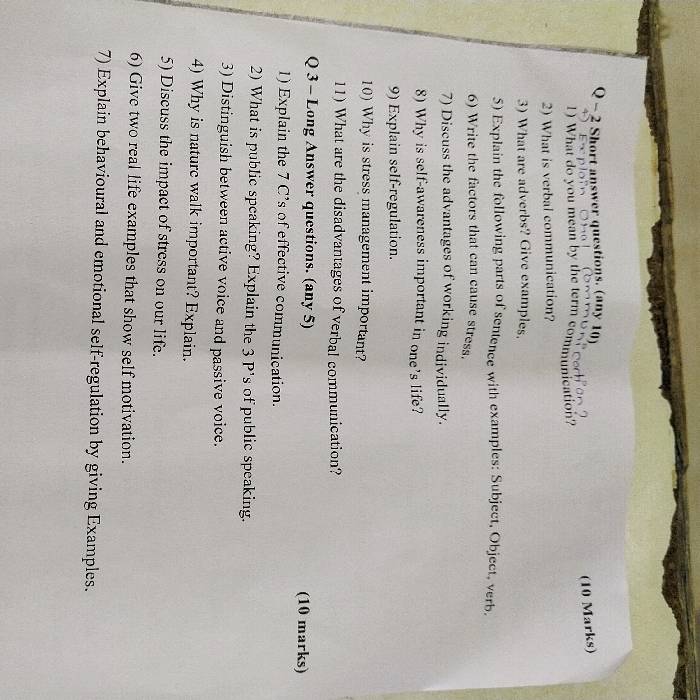 Q – 2 Short answer questions. (any 10) (10 Marks)
4) Explain Oral Communication?
1) What do you mean by the term communication?
2) What is verbal communication?
3) What are adverbs? Give examples.
5) Explain the following parts of sentence with examples: Subject, Object, verb.
6) Write the factors that can cause stress.
7) Discuss the advantages of working individually.
8) Why is self-awareness important in one's life?
9) Explain self-regulation.
10) Why is stress management important?
11) What are the disadvantages of verbal communication?
Q 3 – Long Answer questions. (any 5) (10 marks)
1) Explain the 7 C's of effective communication.
2) What is public speaking? Explain the 3 P's of public speaking.
3) Distinguish between active voice and passive voice.
4) Why is nature walk important? Explain.
5) Discuss the impact of stress on our life.
6) Give two real life examples that show self motivation.
7) Explain behavioural and emotional self-regulation by giving Examples.